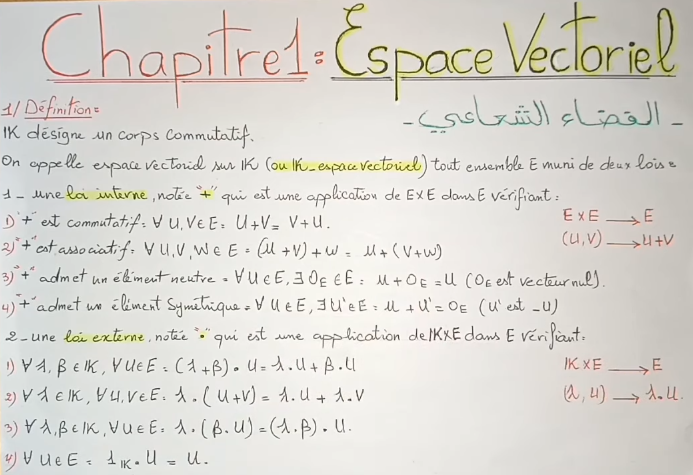 Chapitre1: Espace Vectoriel
- الفضاء الشعاعي -
1/ Définition:
IK désigne un corps commutatif.
On appelle espace vectoriel sur IK (ou IK-espace vectoriel) tout ensemble E muni de deux lois:
1- une loi interne, notée "+" qui est une application de ExE dans E vérifiant:
1) "+" est commutatif: ∀ U,V∈E: U+V = V+U.
E x E → E
2) "+" est associatif: ∀ U,V,W∈E: (U+V)+W = U+(V+W)
(U,V) → U+V
3) "+" admet un élément neutre: ∀U∈E, ∃ 0E∈E: U+0E=U (0E est vecteur nul).
4) "+" admet un élément Symétrique: ∀ U∈E, ∃U'∈E: U+U'=0E (U' est -U)
2- une loi externe, notée "•" qui est une application de IKxE dans E vérifiant:
1) ∀ λ,β∈IK, ∀U∈E: (λ+β)•U=λ.U+β.U
IK x E → E
2) ∀ λ∈IK, ∀U,V∈E: λ.(U+V)=λ.U+λ.V
(λ,U) → λ.U.
3) ∀ λ,β∈IK, ∀U∈E: λ.(β.U)=(λ.β).U.
4) ∀ U∈E: 1IK•U=U.